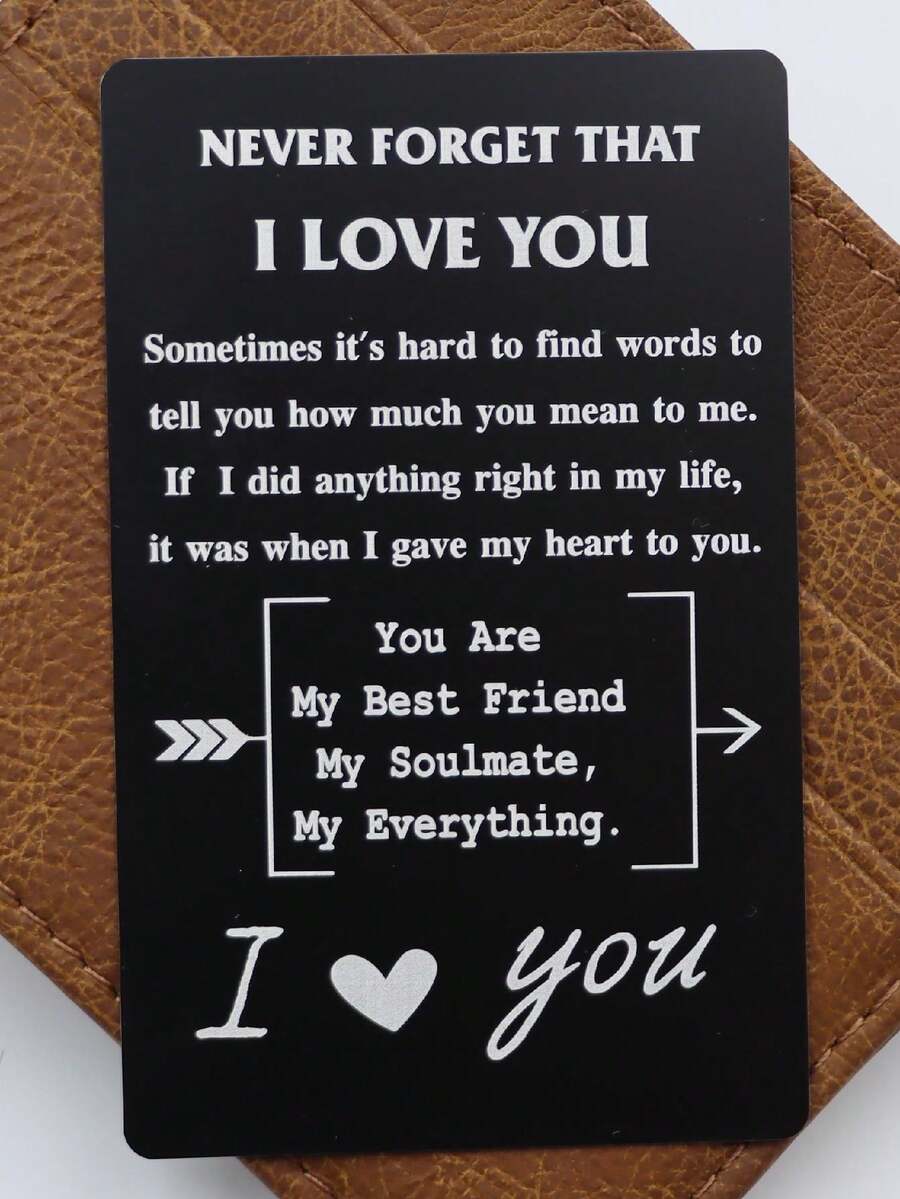 NEVER FORGET THAT
I LOVE YOU
Sometimes it's hard to find words to
tell you how much you mean to me.
If I did anything right in my life,
it was when I gave my heart to you.
You Are
My Best Friend
My Soulmate,
My Everything.
I ♥ you